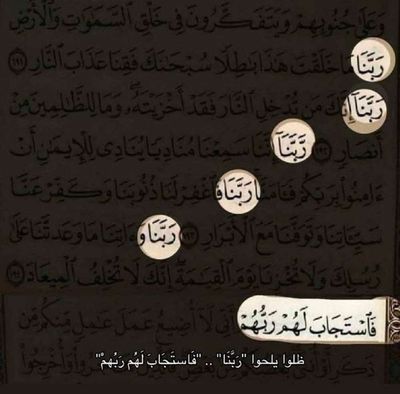 وَعَلَىٰ جُنُوبِهِمْ وَيَتَفَكَّرُونَ فِي خَلْقِ ٱلسَّمَٰوَٰتِ وَٱلْأَرْضِ
رَبَّنَا مَا خَلَقْتَ هَٰذَا بَٰطِلًا سُبْحَٰنَكَ فَقِنَا عَذَابَ ٱلنَّارِ ١٩١
رَبَّنَآ إِنَّكَ مَن تُدْخِلِ ٱلنَّارَ فَقَدْ أَخْزَيْتَهُۥ وَمَا لِلظَّٰلِمِينَ مِنْ
أَنصَارٍ ١٩٢ رَّبَّنَآ إِنَّنَا سَمِعْنَا مُنَادِيًا يُنَادِي لِلْإِيمَٰنِ أَنْ
ءَامِنُوا۟ بِرَبِّكُمْ فَـَٔامَنَّا رَبَّنَا فَٱغْفِرْ لَنَا ذُنُوبَنَا وَكَفِّرْ عَنَّا
سَيِّـَٔاتِنَا وَتَوَفَّنَا مَعَ ٱلْأَبْرَارِ ١٩٣ رَبَّنَا وَءَاتِنَا مَا وَعَدتَّنَا عَلَىٰ
رُسُلِكَ وَلَا تُخْزِنَا يَوْمَ ٱلْقِيَٰمَةِ إِنَّكَ لَا تُخْلِفُ ٱلْمِيعَادَ ١٩٤
فَٱسْتَجَابَ لَهُمْ رَبُّهُمْ أَنِّي لَآ أُضِيعُ عَمَلَ عَٰمِلٍ مِّنكُم مِّن
ظلوا يلحوا "رَبَّنَا" .. "فَاستَجَابَ لَهُم رَبُهمْ"